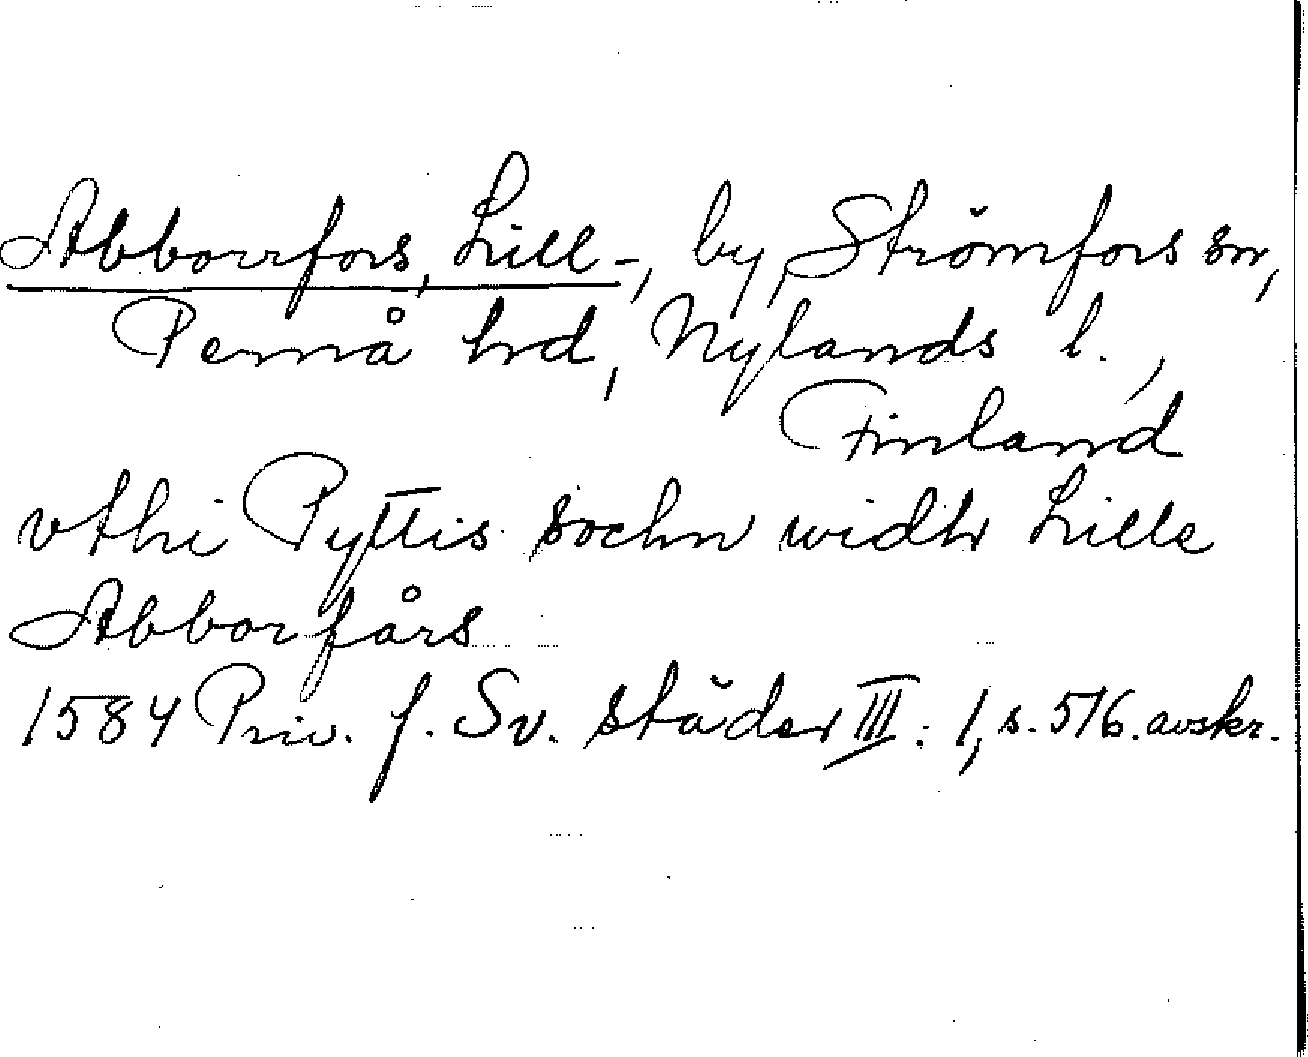 Abborrfors, Lill-, by, Strömfors sn,
Pernå hrd, Nylands l.,
Finland
vthi Pyttis sochn widh Lille
Abborfårs
1584 Priv. f. Sv. städer III: 1, s. 516. avskr.